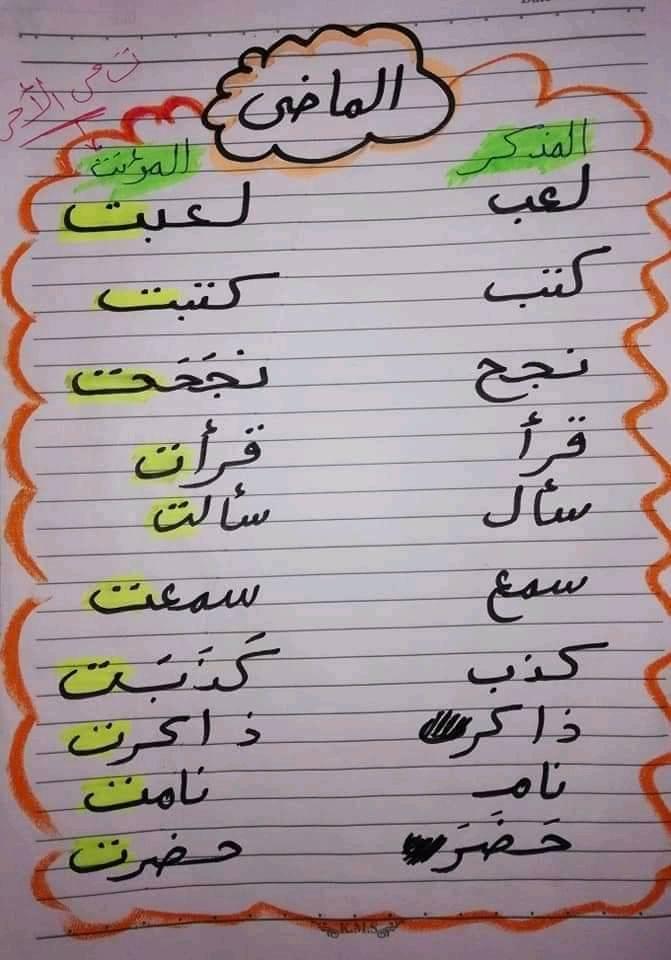 الماضى
ت فى الأخر
المذكر المؤنث
لعب لعبت
كتب كتبت
نجح نجَحَت
قرأ قرأت
سأل سألت
سمع سمعت
كذب كَذَبَت
ذاكر ذاكرت
نام نامت
حَضَرَ حضرت
K.M.S